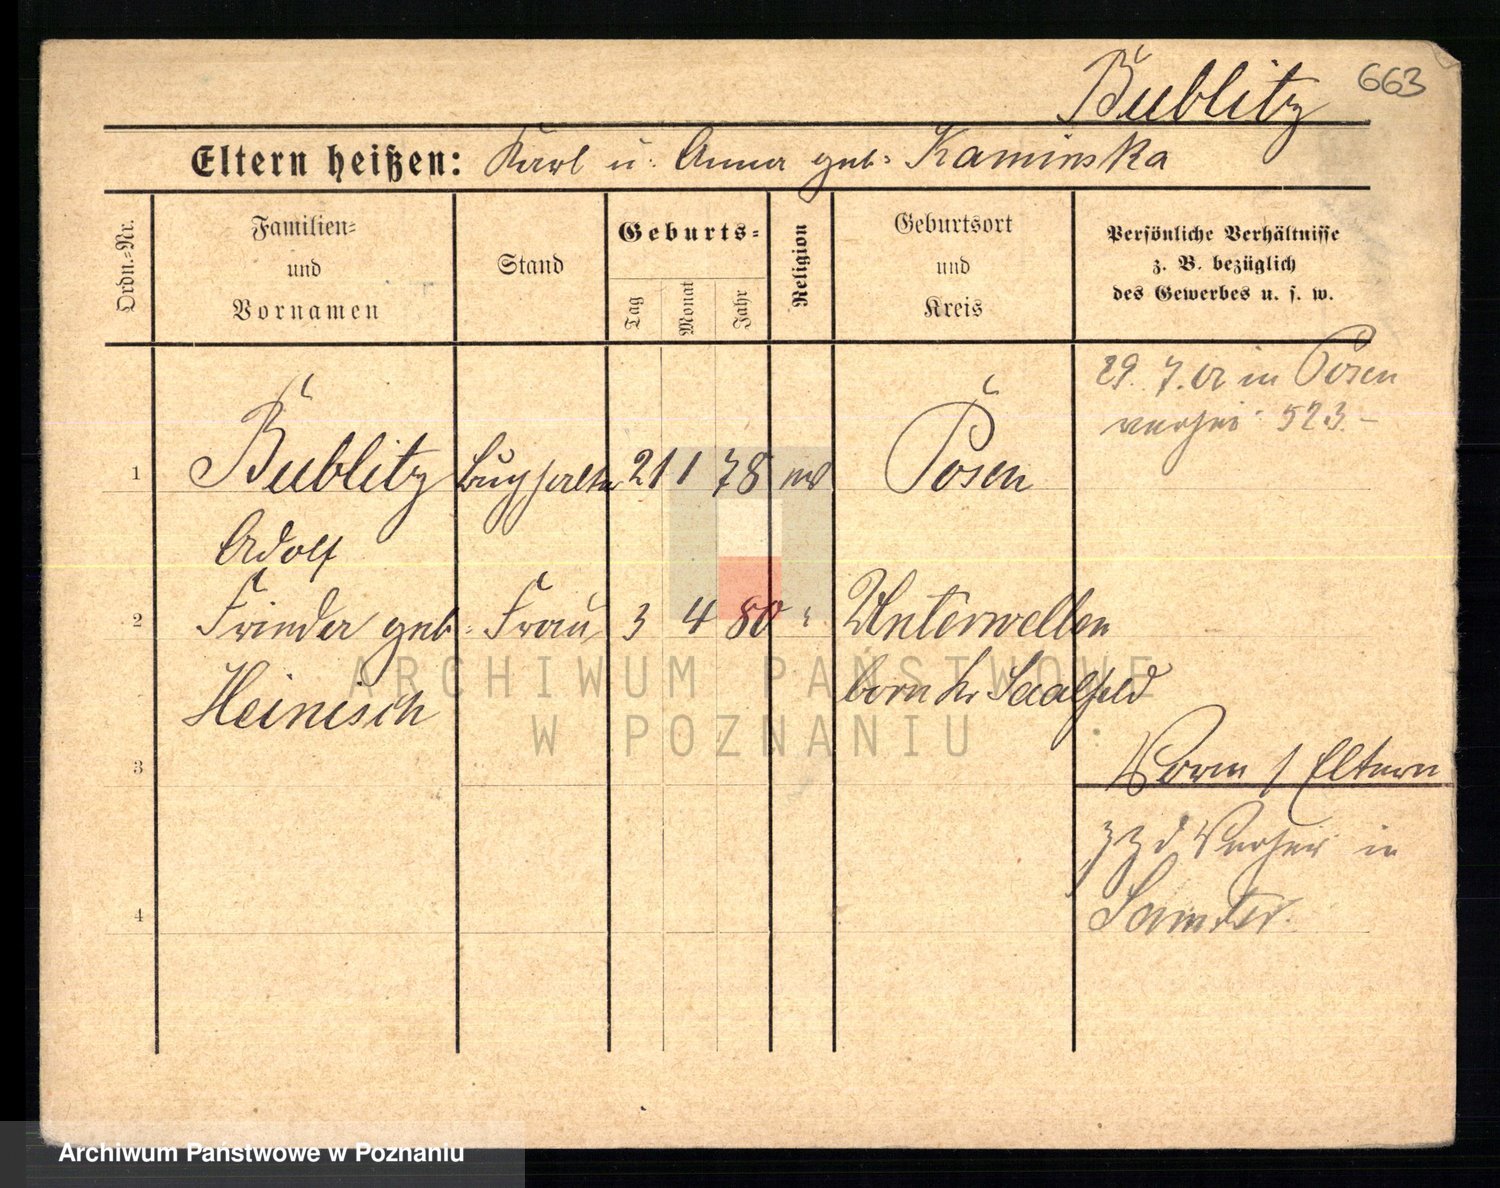 Bublitz 663
Eltern heißen: Karl u. Anna geb. Kaminska
Ordn.-Nr.
Familien-
und
Vornamen
Stand
Geburts-
Tag
Monat
Jahr
Religion
Geburtsort
und
Kreis
Persönliche Verhältnisse
z. B. bezüglich
des Gewerbes u. s. w.
29. 7. in Posen
523.-
1 Bublitz Buchhalter 21 1 78 Posen
Adolf
2 Frieda geb. Frau 3 4 80 " Unterwellen
Heinisch born Kr Saalfeld
3 Vorm Eltern
zzd in
Samter.
4
ARCHIWUM PAŃSTWOWE
W POZNANIU
Archiwum Państwowe w Poznaniu